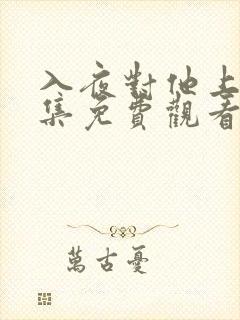 入夜對他上
集免費觀看
萬古憂